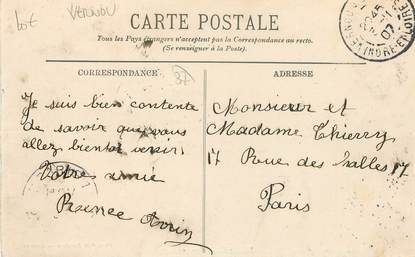 lot
VERNOU
CARTE POSTALE
Tous les Pays étrangers n'acceptent pas la Correspondance au recto.
(Se renseigner à la Poste).
CORRESPONDANCE
37
Je suis bien contente
de savoir que vous
allez bientot venir.
Votre amie
ADRESSE
Monsieur et
Madame Thierry
17 Rue des Halles 17
Paris
INDRE-ET-LOIRE
07